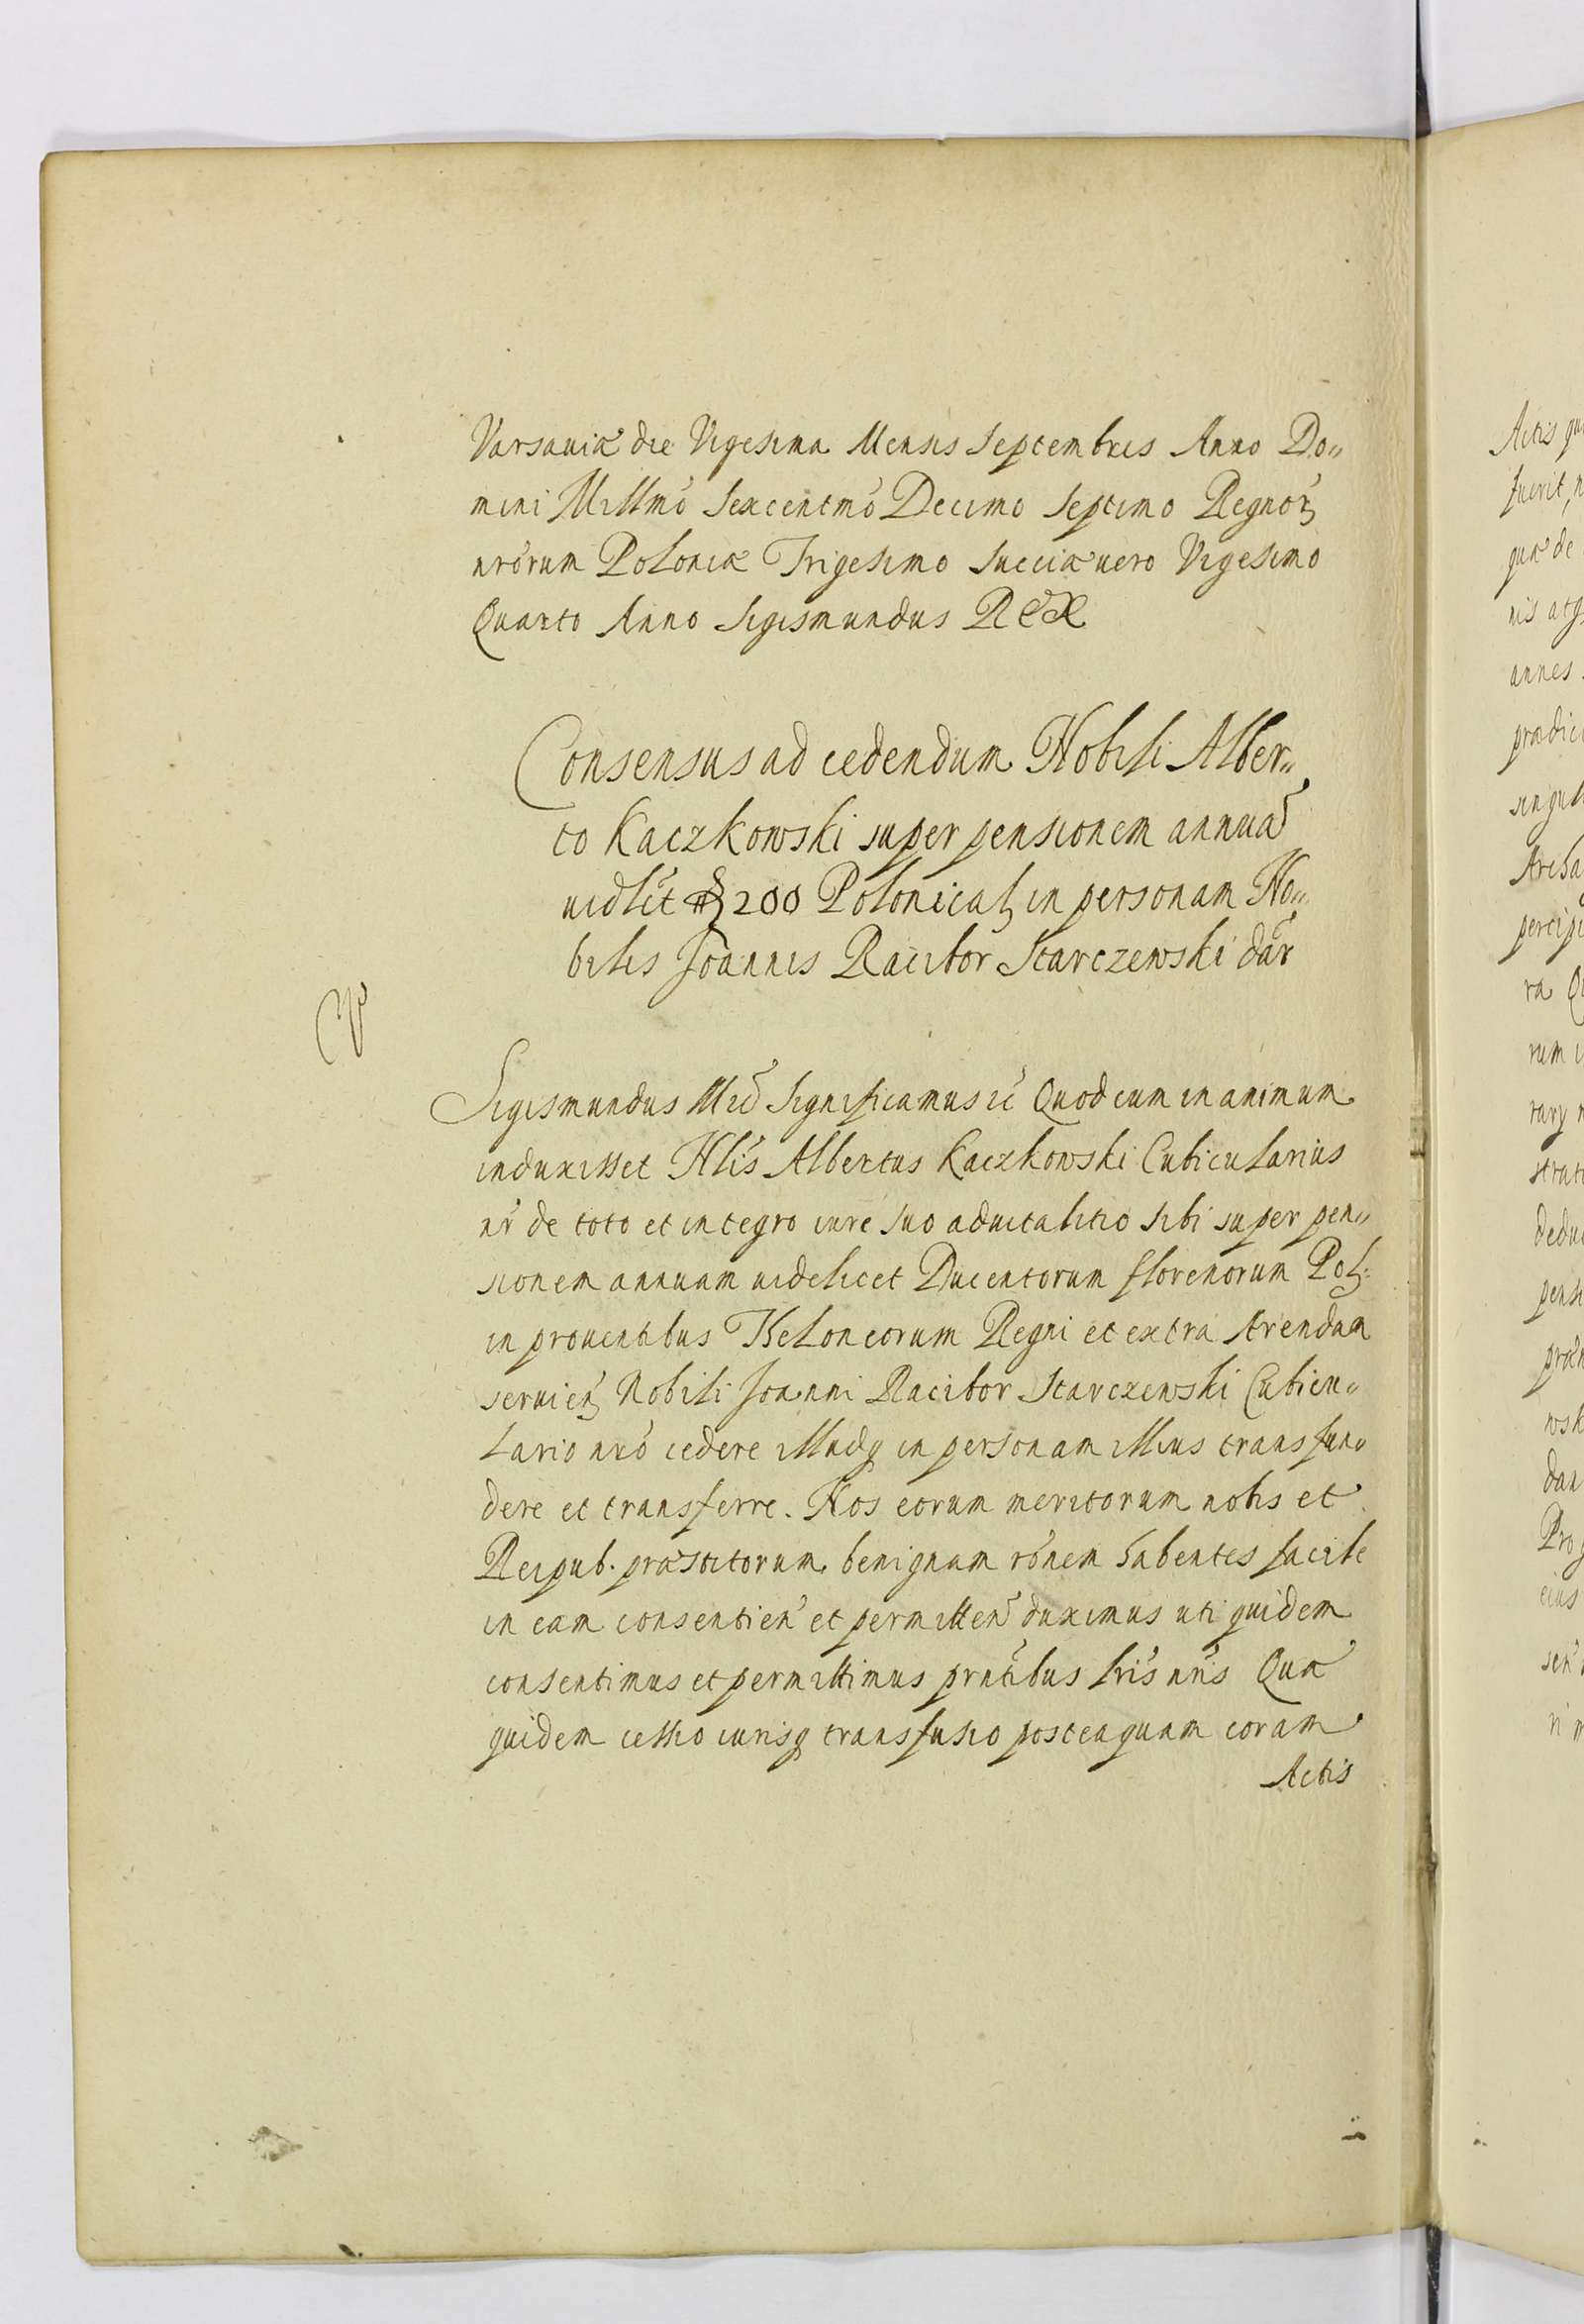 Varsauiæ die Vigesima Mensis Septembris Anno Do„
mini Millmo Sexcentmo Decimo Septimo Regnorꝫ
nrorum Poloniæ Trigesimo Sueciæ uero Vigesimo
Quarto Anno Sigismundus REX
Consensus ad cedendum Nobili Alber„
to Kaczkowski super pensionem annuā
uidlct 200 Polonicalꝫ in personam No„
bilis Joannis Racibor Starczewski dār
V
Sigismundus Significamus Quod cum in animum
induxisset Nlis Albertus Kaczkowski Cubicularius
nr de toto et integro iure suo aduitalitio sibi super pen„
sionem annuam uidelicet Ducentorum florenorum Polꝫ
in prouentibus Theloneorum Regni et extra Arendam
seruienꝫ Nobili Joanni Racibor Starczewski Cubicu„
lario nro cedere illudq in personam illius transfun„
dere et transferre. Nos eorum meritorum nobis et
Reipub. præstitorum benignam ronem habentes facile
in eam consentien et permitten duximus uti quidem
consentimus et permittimus prntibus lris nris Quæ
quidem cessio iurisq transfusio posteaquam coram
Actis
Actis
fuerit,
quæ de
nis atq
annes
prædic
ra
rum
dedu
pens
wsk
dan
Pro
eius